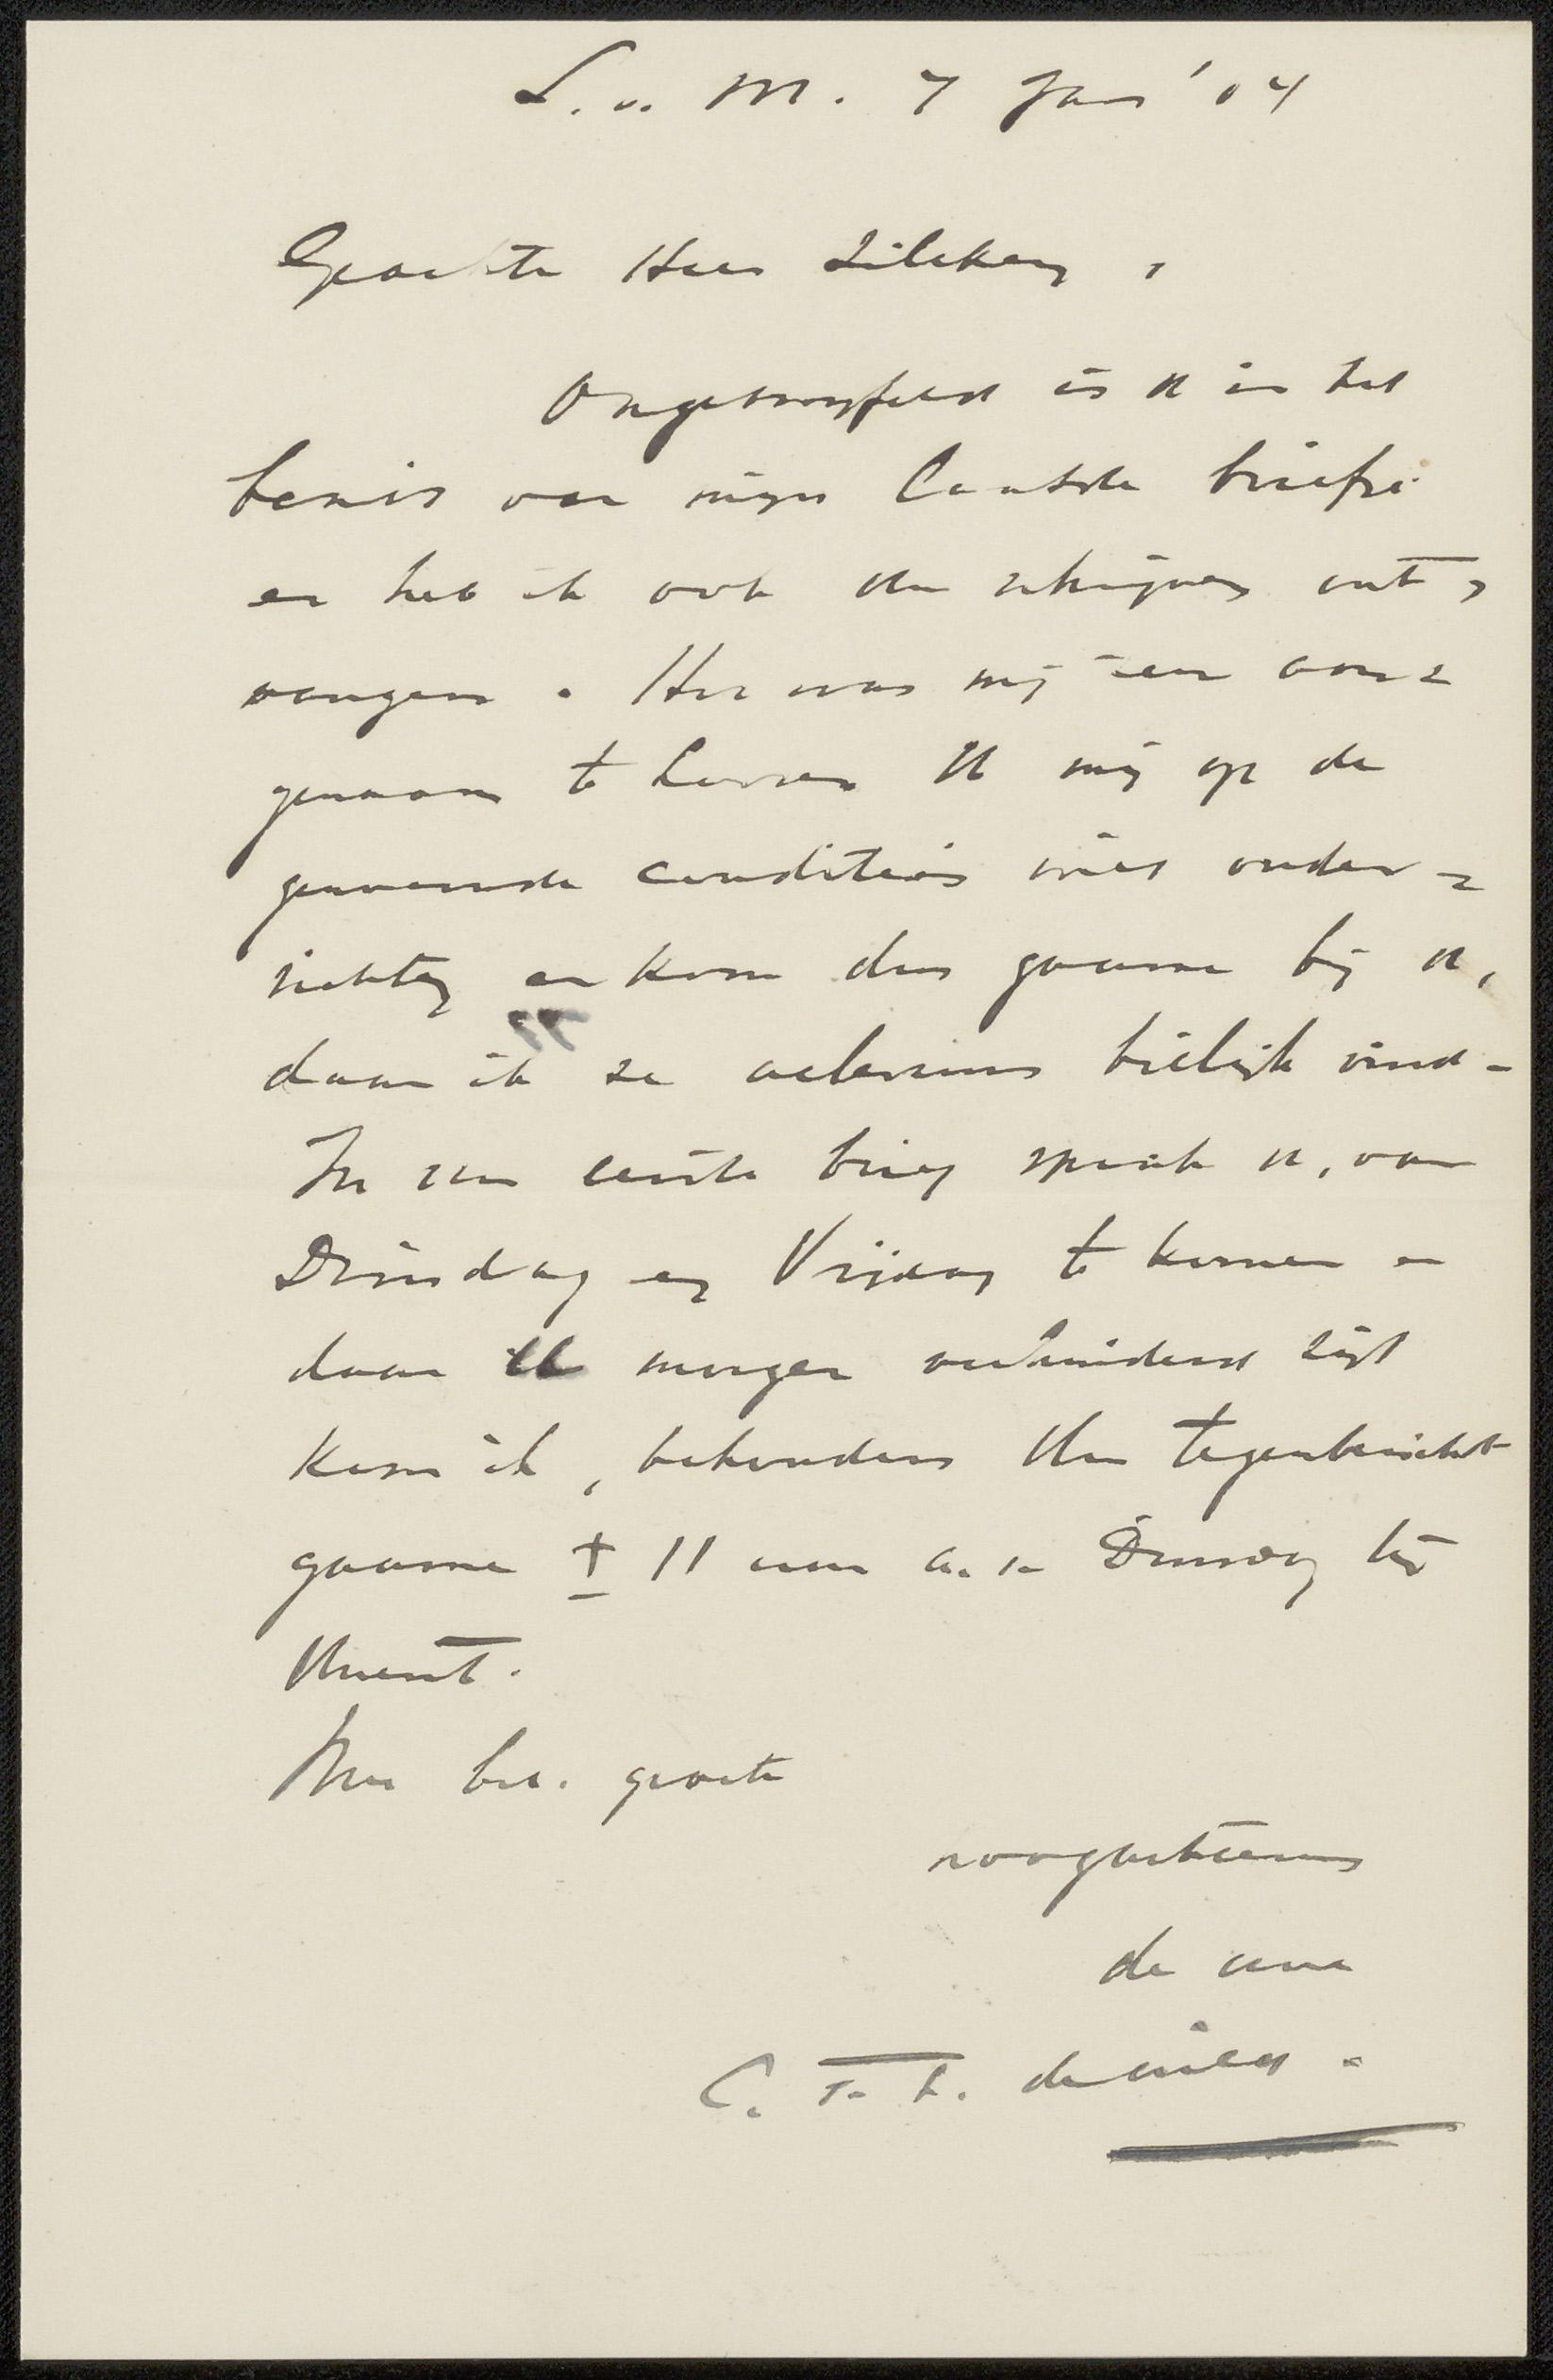 L. v. M. 7 Jan '04
Geachte Heer Zilcken,
Ongetwyfeld is U in het
bezit van mijn laatste briefje
en heb ik ook Uw schrijven ont=
vangen. Het was mij zeer aan=
genaam te hooren U mij op de
genoemde condities wilt onder=
richten en kom dus gaarne bij U,
daar ik ze alleszins billijk vind.
In uw eerste brief sprak U, van
Dinsdag en Vrijdag te komen en
daar U morgen verhinderd zijt
kom ik, behoudens Uw tegenbericht
gaarne ± 11 uur a.s. Dinsdag bij
Uwent.
Met bel. groete
hoogachtend
de uwe
C. T. L.